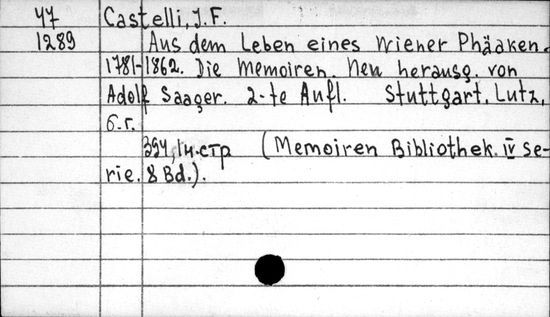 47 Castelli, J. F.
1289 Aus dem Leben eines Wiener Phäaken.
1781-1862. Die Memoiren. Neu herausg. von
Adolf Saager. 2-te Aufl. Stuttgart. Lutz,
б.г.
394, стр (Memoiren Bibliothek. IV Se-
rie. 8 Bd.).